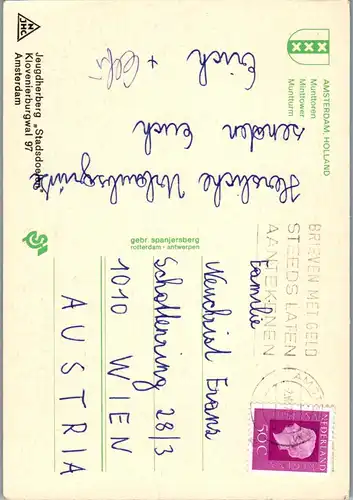 AMSTERDAM, HOLLAND
Munttoren
Minttower
Muntturm
Herzliche Urlaubsgrüße
senden Euch
Erich
NJHC
Jeugdherberg „Stadsdoelen"
Kloveniersburgwal 97
Amsterdam
gebr. spanjersberg
rotterdam - antwerpen
BRIEVEN MET GELD
STEEDS LATEN
AANTEKENEN
NEDERLAND
50c
Familie
Neuchrist Evans
Schottenring 28/3
1010 WIEN
AUSTRIA